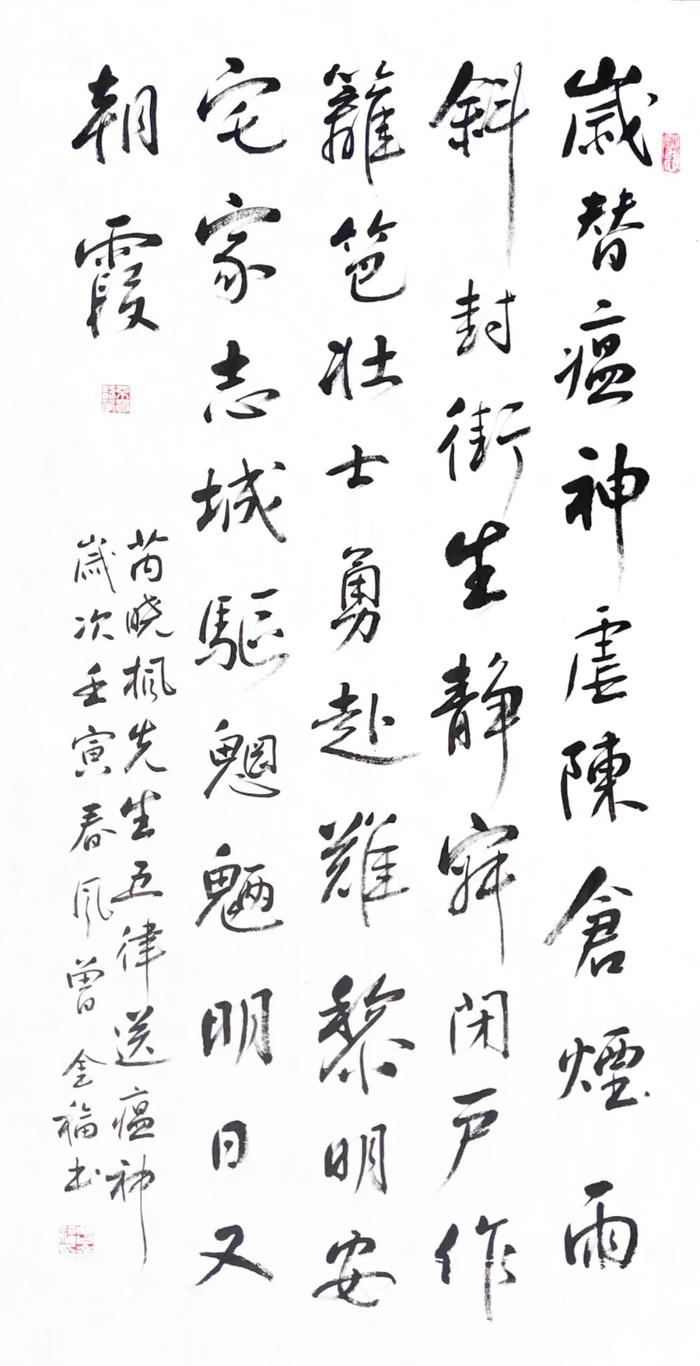 歲替瘟神虐陳倉煙雨
斜封街生静閉户作
籬笆壯士勇赴難黎明安
宅家志城驅魍魎明日又
朝霞
芮晓枫先生五律送瘟神
歲次壬寅春风曾金福书